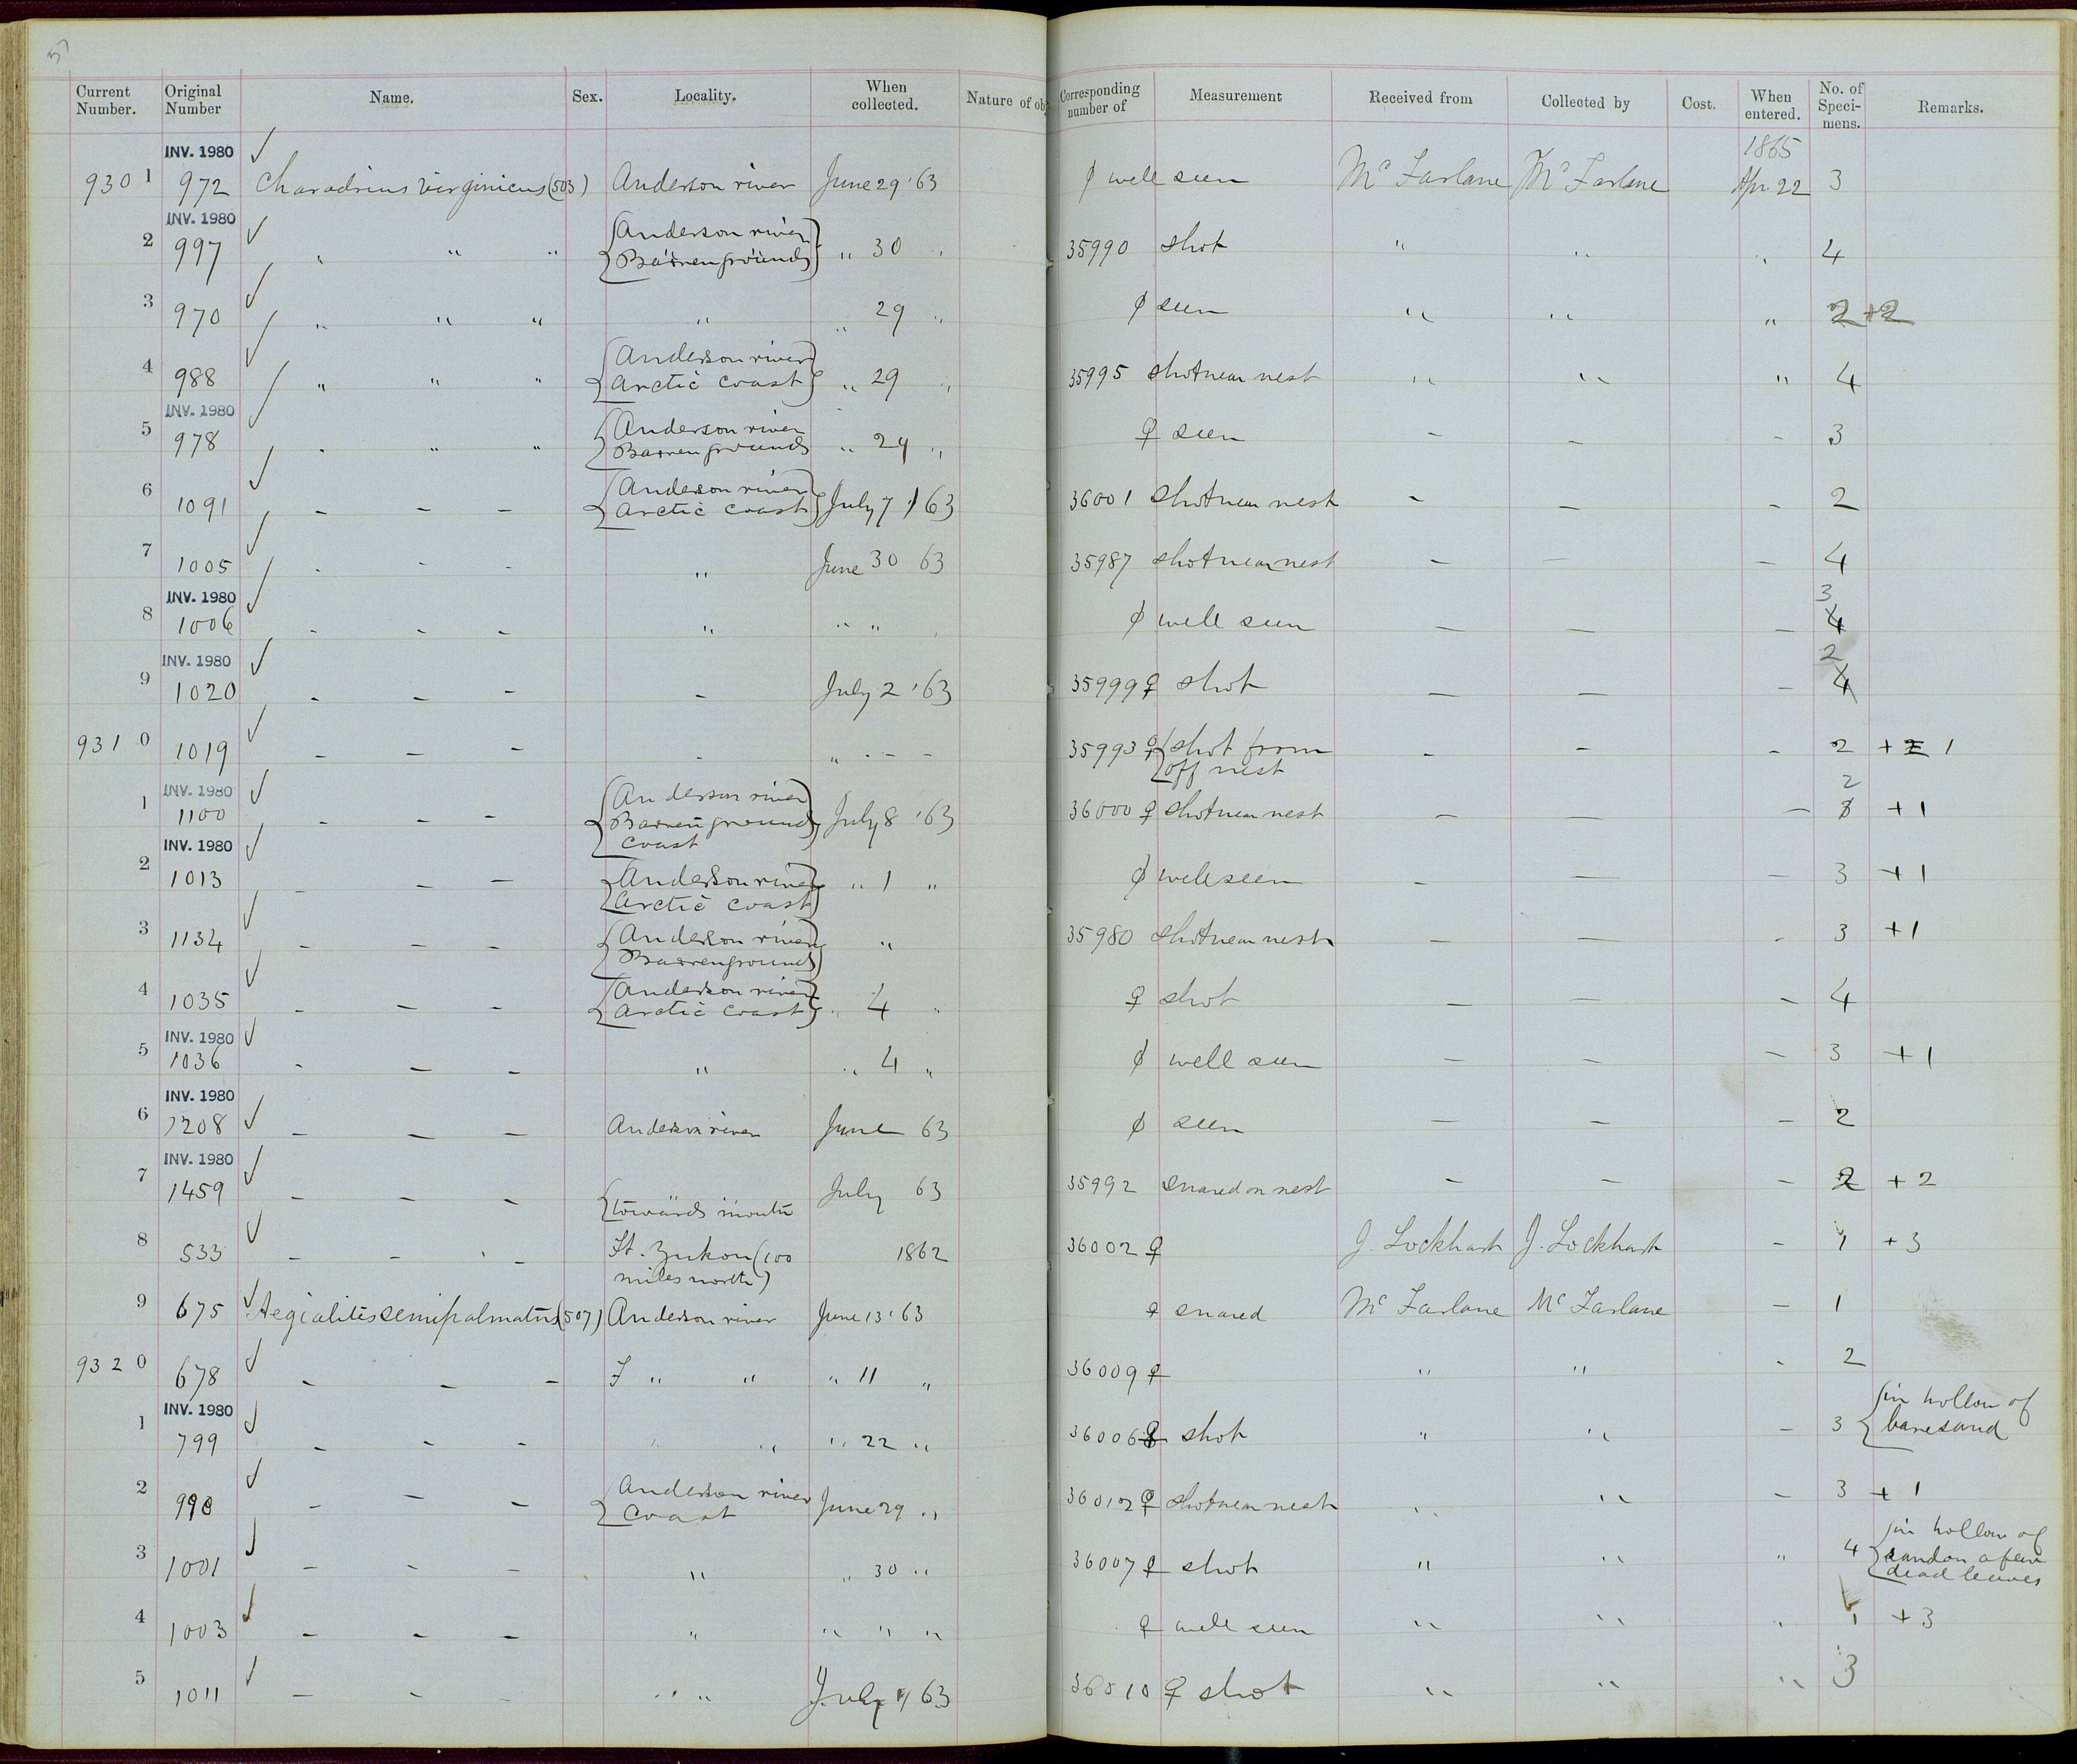 Current Number. Original Number Name. Sex. Locality. When collected. Nature of obj Corresponding number of Measurement Received from Collected by Cost. When entered. No. of Specimens. Remarks.
INV. 1980 1865
9301 972 Charadrius virginicus (503) Anderson river June 29 '63 well seen McFarlane McFarlane Apr. 22 3
INV. 1980
2 997 " " " {Anderson river Barren grounds} " 30 " 35990 shot " " " 4
3 970 " " " " " 29 " seen " " " 2 +2
4 988 " " " {Anderson river Arctic coast} " 29 " 35995 shot near nest " " " 4
INV. 1980
5 978 " " " {Anderson river Barren grounds " 29 " ♀ seen – – – 3
6 1091 – – – {Anderson river Arctic coast} July 7 '63 36001 shot near nest – – – 2
7 1005 – – – " June 30 63 35987 shot near nest – – – 4
INV. 1980 3
8 1006 – – – " " " well seen – – – 4
INV. 1980 2
9 1020 – – – – July 2 '63 35999 ♀ shot – – – 4
9310 1019 – – – – " – – – 35993 ♀ {shot from off nest – – – 2 + 1
INV. 1980 2
1 1100 – – – {Anderson river Barren grounds coast} July 8 '63 36000 ♀ shot near nest – – – +1
INV. 1980
2 1013 – – – {Anderson river Arctic coast} " 1 " well seen – – – 3 +1
3 1134 – – – {Anderson river Barren grounds} " 35980 shot near nest – – – 3 +1
4 1035 – – – {Anderson river Arctic coast} " 4 " ♀ shot – – – 4
INV. 1980
5 1036 – – – " " 4 " well seen – – – 3 +1
INV. 1980
6 1208 – – – Anderson river June 63 seen – – – 2
INV. 1980
7 1459 – – – {" " towards mouth July 63 35992 snared on nest – – – 2 +2
8 533 – – – Ft. Yukon (100 miles north) 1862 36002 ♀ J. Lockhart J. Lockhart – 1 +3
9 675 Aegialitis semipalmatus (507) Anderson river June 13 '63 ♀ snared McFarlane McFarlane – 1
9320 678 – – – " " " 11 " 36009 ♀ " " – 2
INV. 1980
1 799 – – – " " " 22 " 36006 shot " " – 3 {in hollow of bare sand
2 990 – – – {Anderson river coast June 29 " 36012 ♀ shot near nest " " – 3 +1
3 1001 – – – " " 30 " 36007 ♀ shot " " " 4 {in hollow of sand on a few dead leaves
4 1003 – – – " " " " ♀ well seen " " " 1 +3
5 1011 – – – " " July 63 36010 ♀ shot " " " 3